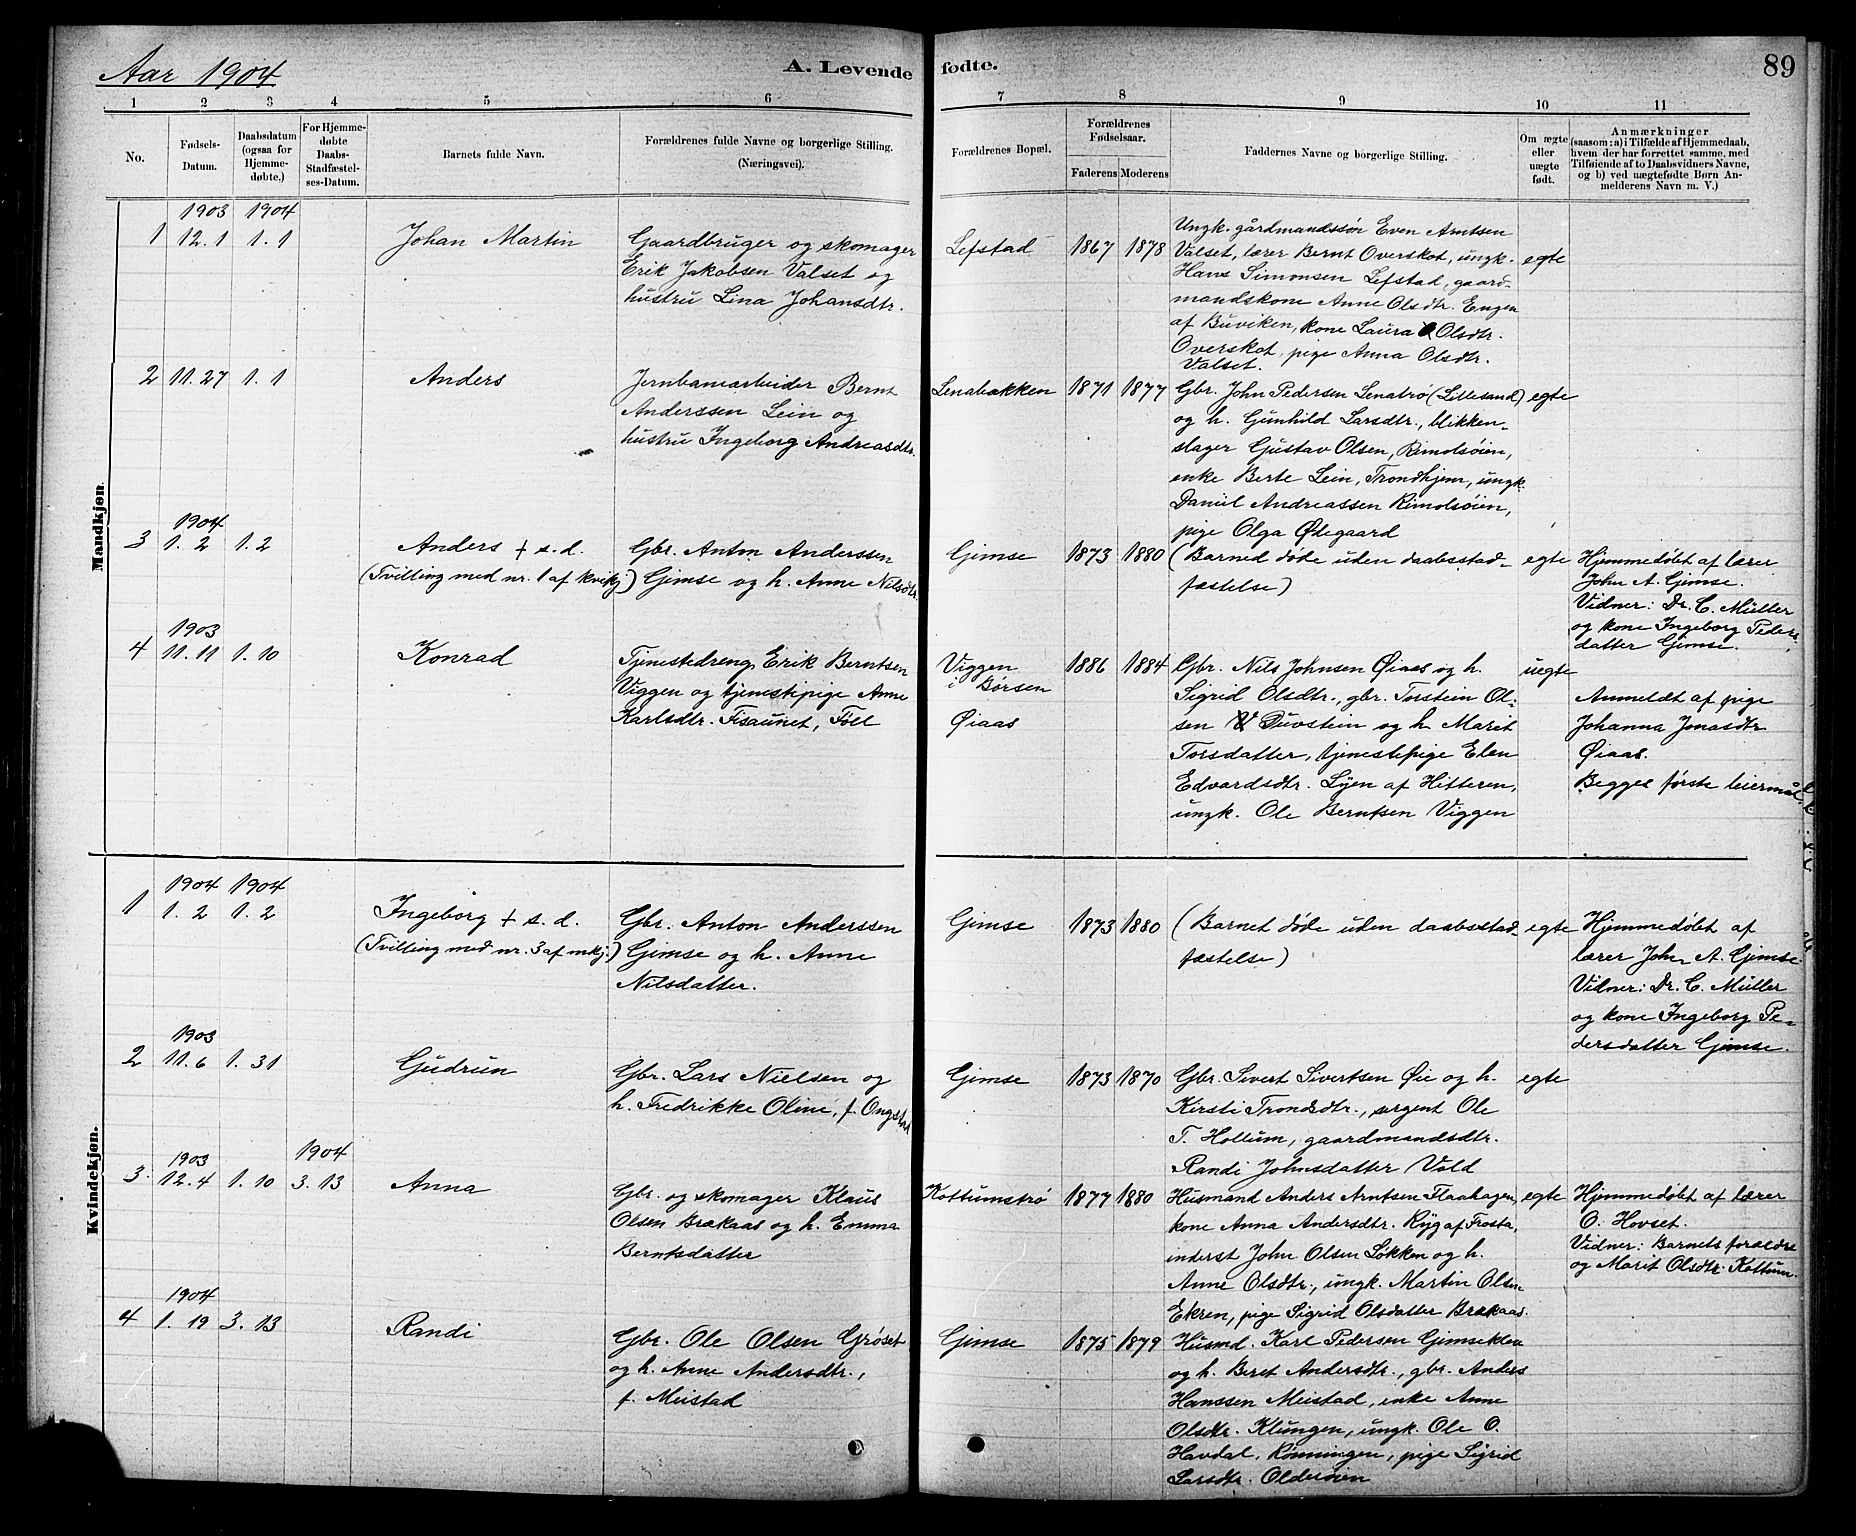 Aar 1904
A. Levende
fødte.
89
1 2 3 4 5 6 7 8 9 10 11
No.
Fødsels-
Datum.
Daabsdatum
(ogsaa for
Hjemme-
døbte.)
For Hjemme-
døbte
Daabs-
Stadfæstel-
ses-Datum.
Barnets fulde Navn.
Forældrenes fulde Navne og borgerlige Stilling.
(Næringsvei).
Forældrenes Bopæl.
Forældrenes
Fødselsaar.
Faderens
Moderens
Faddernes Navne og borgerlige Stilling.
Om ægte
eller
uægte
født.
Anmærkninger
(saasom: a) i Tilfælde af Hjemmedaab,
hvem der har forrettet samme, med
Tilføiende af to Daabsvidners Navne,
og b) ved uægtefødte Børn An-
melderens Navn m. V.)
Mandkjøn
1903 1904
1 12.1 1.1
Johan Martin
Gaardbruger og skomager
Erik Jakobsen Valset og
hustru Lina Johansdtr.
Lefstad
1867 1878
Ungk. gårdmandssøn Even Arntsen
Valset, lærer Bernt Overskot, ungk.
Hans Simonsen Lefstad, gaard-
mandskone Anne Olsdtr. Engen
af Buviken, kone Laura Olsdtr.
Overskot, pige Anna Olsdtr.
Valset.
egte
2 11.27 1.1
Anders
Jernbanearbeider Bernt
Anderssen Lein og
hustru Ingeborg Andreasdtr.
Lenabakken
1871 1877
Gbr. John Pedersen Lenabrø (Lillesand)
og h. Gunhild Larsdtr., blikken-
slager Gustav Olsen, Rimolsøien,
enke Berte Lein, Trondhjem, ungk.
Daniil Andreassen Rimolsøien,
pige Olga Ødegaard
egte
1904
3 1.2 1.2
Anders + s.d.
(Tvilling med nr. 1 af kvikj.)
Gbr. Anton Anderssen
Gimse og h. Anne Nilsdtr.
Gimse
1873 1880
(Barned døde uden daabsstad-
fæstelse)
egte
Hjemmedøbt af lærer
John A. Gimse.
Vidner: Dr. C. Müller
og kone Ingeborg Peders-
datter Gimse.
1903
4 11.11 1.10
Konrad
Tjenestedreng Erik Berntsen
Viggen og tjenestepige Anne
Karlsdtr. Fisaunet, Føll
Viggen
i Børsen
Øiaas
1886 1884
Gbr. Nils Johnsen Øiaas og h.
Sigrid Olsdtr., gbr. Torstein Ol-
sen Duvstein og h. Marit
Torsdatter, tjenestepige Elen
Edvardsdtr. Lyen af Hitteren,
ungk. Ole Berntsen Viggen
uegte
Anmeldt af pige
Johanna Jonasdtr
Øiaas.
Begges første leiermål
Kvindekjøn.
1904 1904
1 1.2 1.2
Ingeborg + s.d.
(Tvilling med nr. 3 af mkj.)
Gbr. Anton Anderssen
Gimse og h. Anne
Nilsdatter.
Gimse
1873 1880
(Barnet døde uden daabsstad-
fæstelse)
egte
Hjemmedøbt af
lærer John A. Gimse.
Vidner: Dr. C. Müller
og kone Ingeborg Pe-
dersdatter Gimse.
1903
2 11.6 1.31
Gudrun
Gbr. Lars Nielsen og
h. Fredrikke Oline, f. Ongstad
Gimse
1873 1870
Gbr. Sivert Sivertsen Øie og h.
Kirsti Trondsdtr., sergent Ole
T. Hollum, gaardmandsdtr.
Randi Johnsdatter Vold
egte
1903 1904
3. 12.4 1.10 3.13
Anna
Gbr. og skomager Klaus
Olsen Brækaas og h. Emma
Berntsdatter
Kottumstrø
1877 1880
Husmand Anders Arntsen Flaahagen,
kone Anna Andersdtr. Ryg af Frosta,
inderst John Olsen Løkken og h.
Anne Olsdtr., ungk. Martin Olsen
Ekren, pige Sigrid Olsdatter Brækaas.
egte
Hjemmedøbt af lærer
O. Hovset.
Vidner: Barnets forældre
og Marit Olsdtr. Kottum.
1904
4 1.19 3.13
Randi
Gbr. Ole Olsen Grøset
og h. Anne Andersdtr.,
f. Meistad
Gimse
1875 1879
Husmd. Karl Pedersen Gimseklev
og h. Beret Andersdtr., gbr. Anders
Hanssen Meistad, enke Anne
Olsdtr. Klungen, ungk. Ole O.
Havdal, Rønningen, pige Sigrid
Larsdtr. Oldersøien